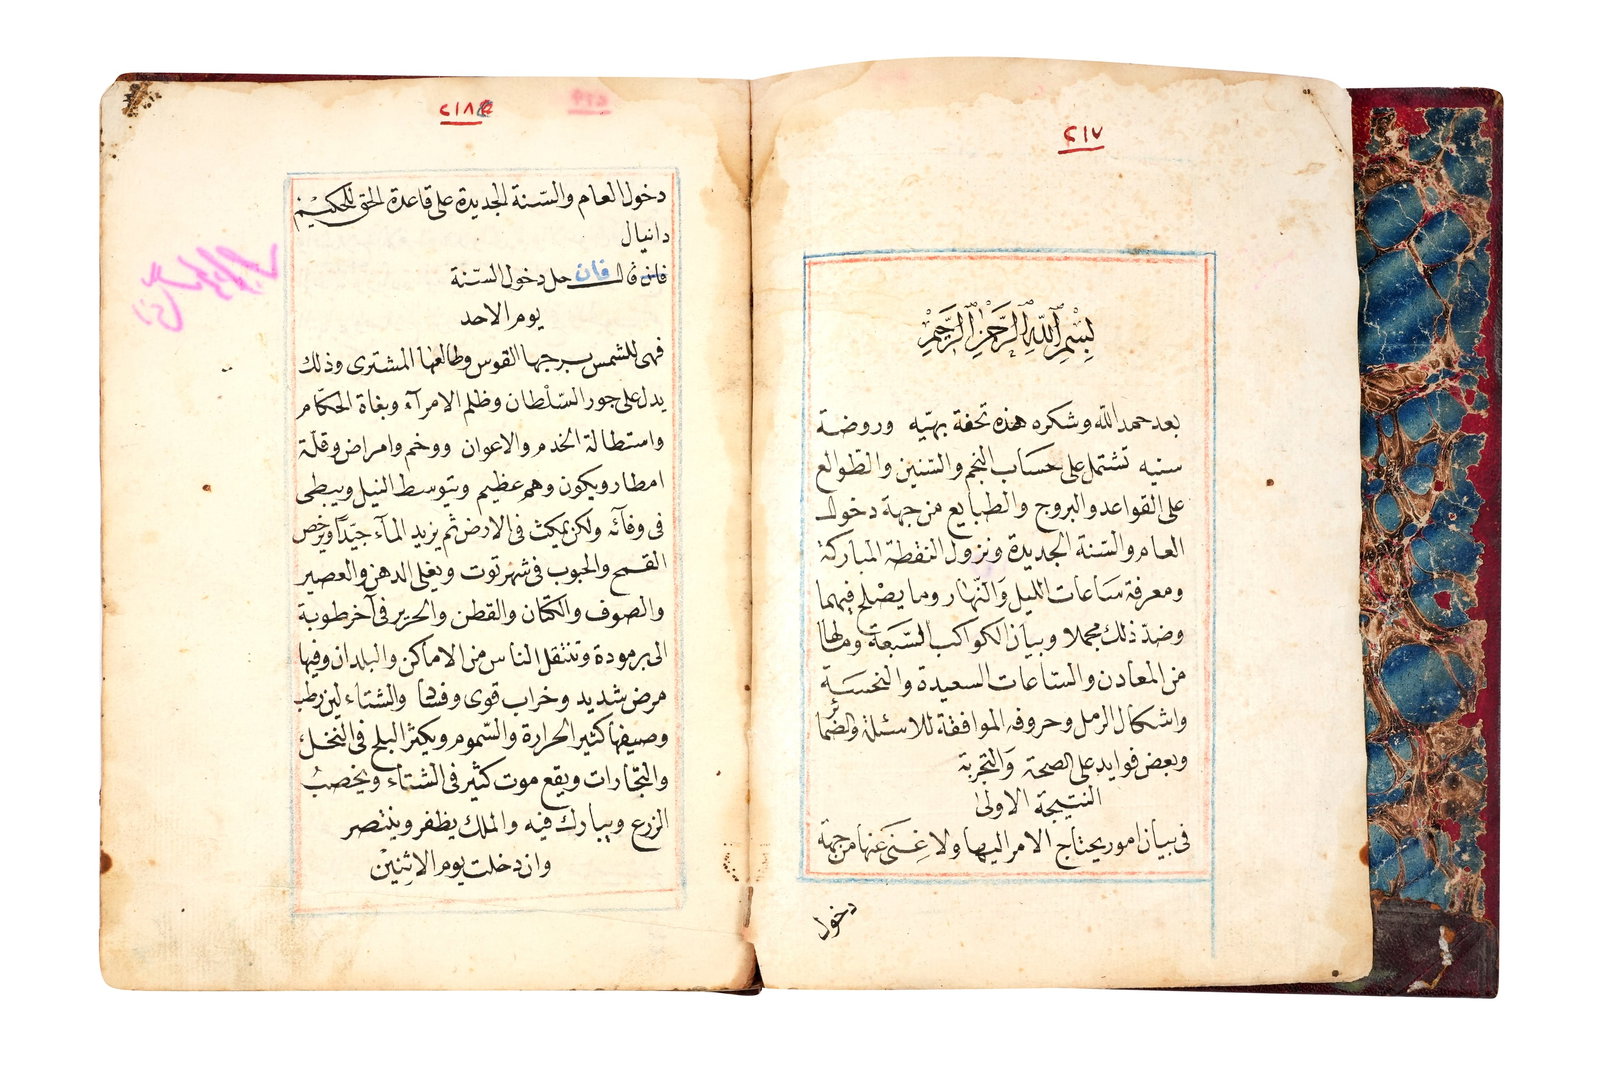 ٢١٧
بِسْمِ اللّٰهِ الرَّحْمٰنِ الرَّحِيْمِ
بعد حمد الله وشكره هذه تحفة بهيّه وروضة
سنيه تشتمل على حساب النجم والسّنين والطوالع
على القواعد والبروج والطبايع من جهة دخول
العام والسّنة الجديدة ونزول النقطة المباركة
ومعرفة ساعات الليل وَالنّهار وما يصْلح فيهما
وضدّ ذلك مجملا وبيان الكواكب السّبعة ومالها
من المعادن والسّاعات السعيدة والنحسَية
واشكال الرمل وحروفه الموافقة للاسئلة والضمائر
وبعض فوايد على الصحة وَالتجربة
النتيجة الاولى
فى بيان امور يحتاج الامر اليها ولا غِنَى عَنها من جهة
دخول
٢١٨
دخول العام والسّنة الجديدة على قاعدة الحق للحكيم
دانيال
قال فان حل دخول السّنة
يوم الاحد
فهى للشمس برجها القوس وطالعها المشترى وذلك
يدل على جور السّلْطان وظلم الامرآء وبغاة الحكام
واستطالة الخدم والاعوان ووخم وامراض وقلّة
امطار ويكون وهم عظيم ويتوسط النيل ويبطى
فى وفآئه ولكن يمكث فى الارض ثم يزيد المآء جيّدًا ويرخص
القمح والحبوب فى شهر توت ويغلى الدهن والعصير
والصوف والكتان والقطن والحرير فى آخر طوبة
الى برمودة وتنتقل الناس من الاماكن والبلدان وفيها
مرض شديد وخراب قوى وفساد والشتاء لين رطب
وصيفها كثير الحرارة والسّموم ويكثر البلح فى النخل
والتجّارات ويقع موت كثير فى الشتاء ويخصبُ
الزرع ويبارك فيه والملك يظفر وينتصر
وان دخلت يوم الاثنِيْن